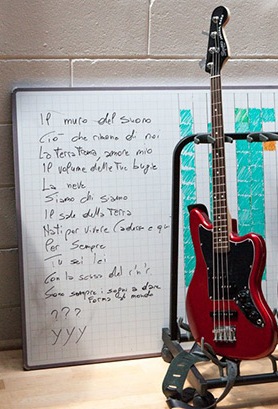 Il muro del suono
Ciò che rimane di noi
La terra trema, amore mio
Il volume delle tue bugie
La neve
Siamo chi siamo
Il sale della terra
Nati per vivere (adesso e qui
Per Sempre
Tu sei lei
Con la scusa del r'n'r
Sono sempre i sogni a dare
forma al mondo
???
YYY